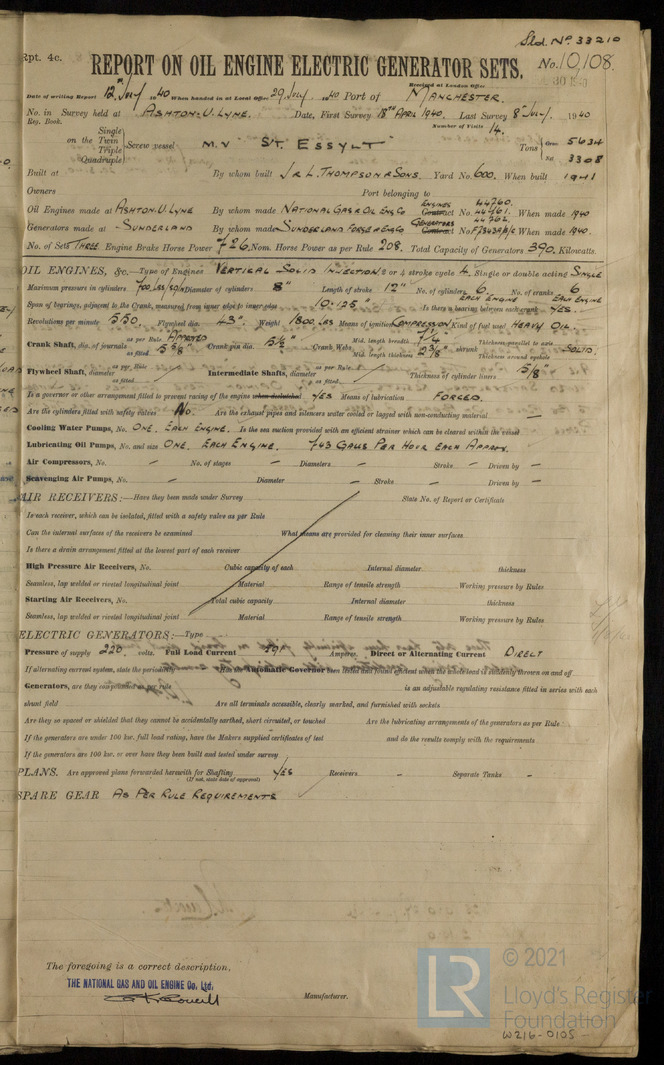 Sld. No. 33210
Rpt. 4c.
REPORT ON OIL ENGINE ELECTRIC GENERATOR SETS.
No. 10,108.
Received at London Office
Date of writing Report 12th July 1940 When handed in at Local Office 29 July 1940 Port of MANCHESTER.
No. in Survey held at ASHTON-U-LYNE. Date, First Survey 18TH APRIL 1940. Last Survey 8th July. 1940
Reg. Book. Number of Visits 14.
Single
on the Twin
Triple
Quadruple
Screw vessel M.V ST. ESSYLT
Tons Gross 5634
Net 3308
Built at By whom built J & L. THOMPSON & SONS. Yard No. 600. When built 1941
Owners Port belonging to
Oil Engines made at ASHTON-U-LYNE By whom made NATIONAL GAS & OIL ENG CO ENGINES Contract No. 44760. 44761. 44762. When made 1940
Generators made at SUNDERLAND By whom made SUNDERLAND FORGE & ENG CO GENERATORS Contract No. When made 1940.
No. of Sets THREE. Engine Brake Horse Power 726. Nom. Horse Power as per Rule 208. Total Capacity of Generators 390. Kilowatts.
OIL ENGINES, &c.—Type of Engines VERTICAL SOLID INJECTION 2 or 4 stroke cycle 4. Single or double acting SINGLE
Maximum pressure in cylinders 700 LBS/□" Diameter of cylinders 8" Length of stroke 12" No. of cylinders 6 EACH ENGINE No. of cranks 6 EACH ENGINE
Span of bearings, adjacent to the Crank, measured from inner edge to inner edge 10.125" Is there a bearing between each crank YES.
Revolutions per minute 550 Flywheel dia. 43" Weight 1800 LBS Means of ignition COMPRESSION Kind of fuel used HEAVY OIL.
Crank Shaft, dia. of journals as per Rule APPROVED as fitted 5 5/8" Crank pin dia. 5 1/2" Crank Webs Mid. length breadth 7 1/4 Mid. length thickness 2 3/8" shrunk Thickness parallel to axis Thickness around eyehole SOLID.
Flywheel Shaft, diameter as per Rule as fitted Intermediate Shafts, diameter as per Rule as fitted Thickness of cylinder liners 5/8"
Is a governor or other arrangement fitted to prevent racing of the engine when declutched YES Means of lubrication FORCED.
Are the cylinders fitted with safety valves NO. Are the exhaust pipes and silencers water cooled or lagged with non-conducting material —
Cooling Water Pumps, No. ONE. EACH ENGINE. Is the sea suction provided with an efficient strainer which can be cleared within the vessel
Lubricating Oil Pumps, No. and size ONE. EACH ENGINE. 743 GALLS PER HOUR EACH APPROX.
Air Compressors, No. — No. of stages — Diameters — Stroke — Driven by —
Scavenging Air Pumps, No. — Diameter — Stroke — Driven by —
AIR RECEIVERS:—Have they been made under Survey State No. of Report or Certificate
Is each receiver, which can be isolated, fitted with a safety valve as per Rule
Can the internal surfaces of the receivers be examined What means are provided for cleaning their inner surfaces
Is there a drain arrangement fitted at the lowest part of each receiver
High Pressure Air Receivers, No. Cubic capacity of each Internal diameter thickness
Seamless, lap welded or riveted longitudinal joint Material Range of tensile strength Working pressure by Rules
Starting Air Receivers, No. Total cubic capacity Internal diameter thickness
Seamless, lap welded or riveted longitudinal joint Material Range of tensile strength Working pressure by Rules
ELECTRIC GENERATORS:—Type
Pressure of supply 220. volts. Full Load Current 591 Amperes. Direct or Alternating Current DIRECT
If alternating current system, state the periodicity Has the Automatic Governor been tested and found efficient when the whole load is suddenly thrown on and off
Generators, are they compounded as per rule is an adjustable regulating resistance fitted in series with each
shunt field Are all terminals accessible, clearly marked, and furnished with sockets
Are they so spaced or shielded that they cannot be accidentally earthed, short circuited, or touched Are the lubricating arrangements of the generators as per Rule
If the generators are under 100 kw. full load rating, have the Makers supplied certificates of test and do the results comply with the requirements
If the generators are 100 kw. or over have they been built and tested under survey
PLANS. Are approved plans forwarded herewith for Shafting YES Receivers — Separate Tanks —
(If not, state date of approval)
SPARE GEAR AS PER RULE REQUIREMENTS
The foregoing is a correct description,
THE NATIONAL GAS AND OIL ENGINE Co. Ltd.
Manufacturer.
LR
© 2021
Lloyd's Register
Foundation
W216-0105